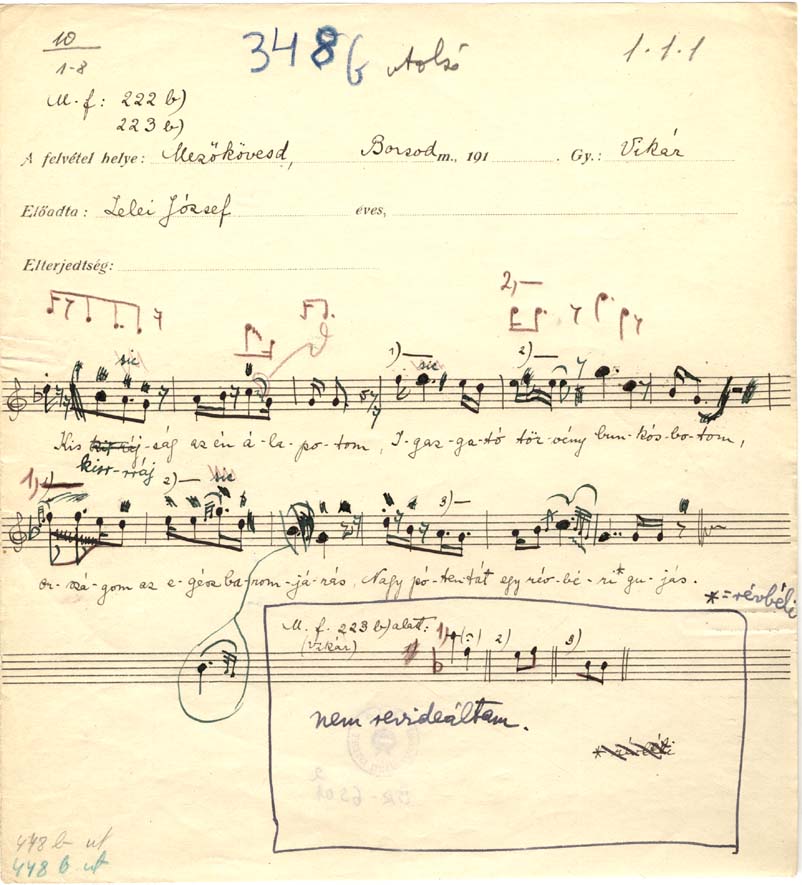 10
1-8
348 b utolsó
1.1.1
M. f: 222 b)
223 b)
A felvétel helye: Mezőkövesd, Borsod m., 191 . Gy.: Vikár
Előadta: Lelei József éves,
Elterjedtség:
2,—
sic
1)—
sic
2)—
Kis kis ráj-ság az én á-la-po-tom, I-gaz-ga-tó tör-vény bun-kós-bo-tom,
kisr-rráj
1,
2)—
sic
3)—
or-szá-gom az e-gész ba-rom-já-rás, Nagy pó-ten-tát egy rév-bé-ri* gu-jás.
*=révbéli
M. f. 223 b) alat:
(Vikár)
1)
2)
3)
nem revideáltam.
448 b ut
448 b ut